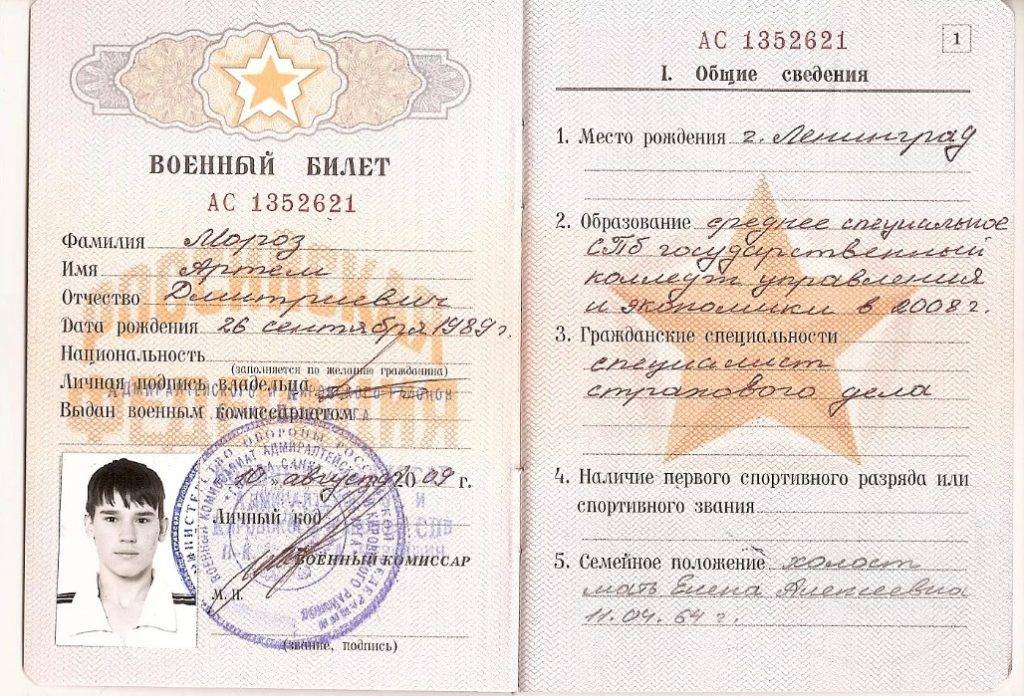 ВОЕННЫЙ БИЛЕТ
АС 1352621
Фамилия Мороз
Имя Артем
Отчество Дмитриевич
Дата рождения 26 сентября 1989г.
Национальность
(заполняется по желанию гражданина)
Личная подпись владельца
Выдан военным комиссариатом
АДМИРАЛТЕЙСКОГО И КИРОВСКОГО РАЙОНОВ
"10" августа 2009 г.
Личный код
ВОЕННЫЙ КОМИССАР
М. П.
(звание, подпись)
АС 1352621
1
I. Общие сведения
1. Место рождения г. Ленинград
2. Образование среднее специальное
СПб государственный
колледж управления
и экономики в 2008г.
3. Гражданские специальности
специалист
страхового дела
4. Наличие первого спортивного разряда или
спортивного звания
5. Семейное положение холост
мать Елена Алексеевна
11.04.64 г.